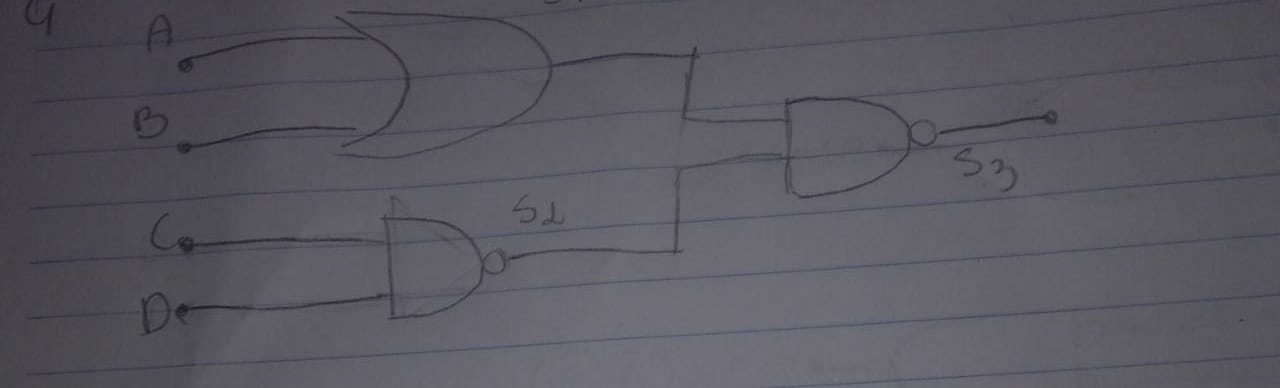 A
B
C
D
S2
S3